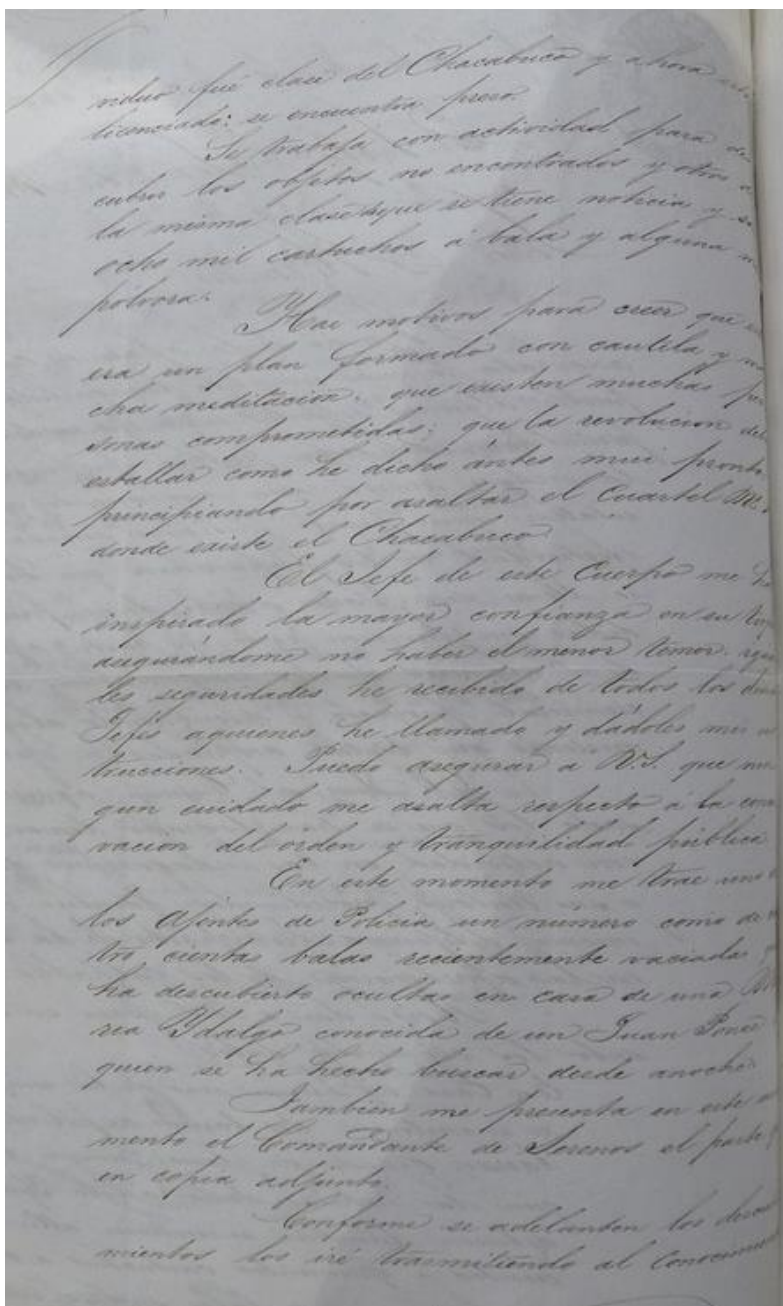 viduo fué clase del Chacabuco y ahora está
licenciado: se encuentra preso.
Se trabaja con actividad para des
cubrir los objetos no encontrados y otros d
la misma clase de que se tiene noticia y
ocho mil cartuchos á bala y alguna
pólvora.
Hai motivos para creer que
era un plan formado con cautela y mu
cha meditacion: que existen muchas per
sonas comprometidas: que la revolucion deb
estallar como he dicho ántes mui pronto
principiando por asaltar el Cuartel
donde existe el Chacabuco
El Jefe de este Cuerpo me h
inspirado la mayor confianza en su
asegurándome no haber el menor temor. igua
les seguridades he recibido de todos los
Jefes aquienes he llamado y dádoles mis
trucciones. Puedo asegurar a V.S. que nin
gun cuidado me asalta respecto á la conser
vacion del órden y tranquilidad pública
En este momento me trae uno
los Ajentes de Policia un número como de
tro cientas balas recientemente vaciadas
ha descubierto ocultas en casa de una Ma
ria Ydalgo conocida de un Juan Ponce
quien se ha hecho buscar desde anoche
Tambien me presenta en este mo
mento el Comandante de Serenos el parte
en copia adjunto.
Conforme se adelanten los descu
mientos los iré trasmitiendo al conocimien